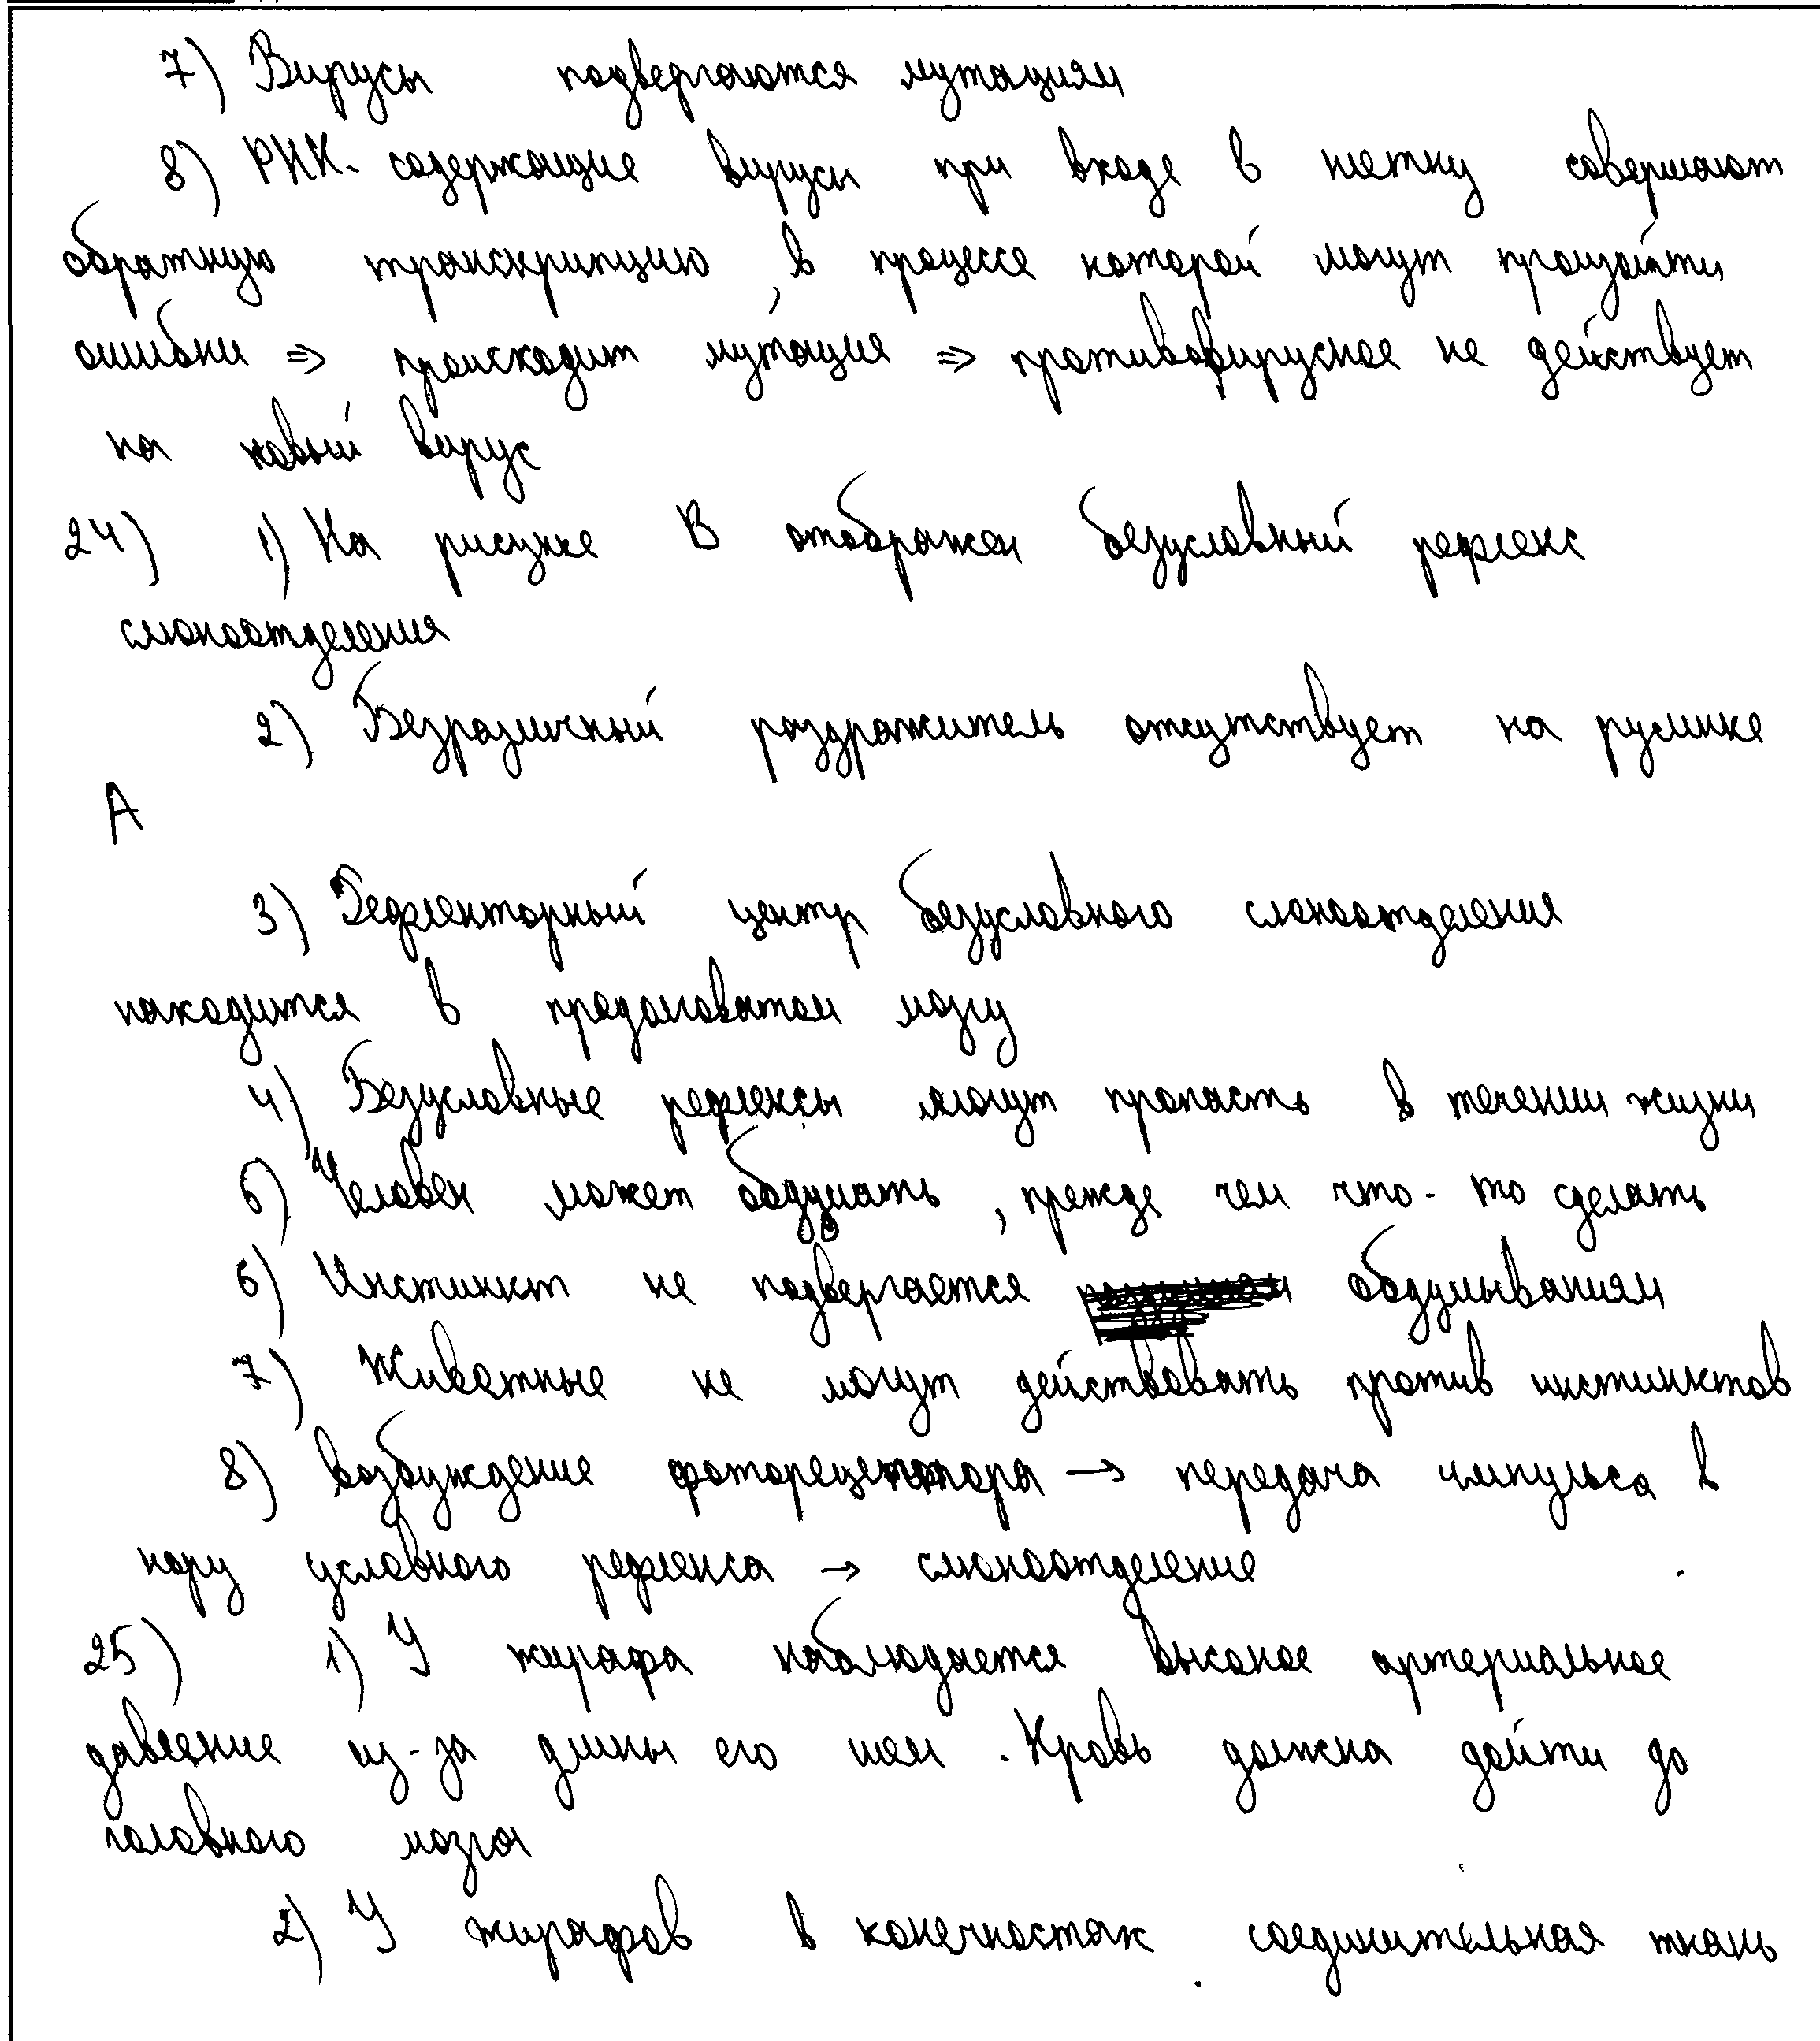 7) Вирусы подвергаются мутациям
8) РНК-содержащие вирусы при входе в клетку совершают
обратную транскрипцию, в процессе которой могут произойти
ошибки ⇒ происходит мутация ⇒ противовирусное не действует
на новый вирус
24) 1) На рисунке В отображен безусловный рефлекс
слюноотделения
2) Безразличный раздражитель отсутствует на русинке
А
3) Рефлекторный центр безусловного слюноотделения
находится в продолговатом мозгу
4) Безусловные рефлексы могут пропасть в течении жизни
5) Человек может обдумать, прежде чем что-то сделать
6) Инстинкт не подвергается обдумываниям
7) Животные не могут действовать против инстинктов
8) Возбуждение фоторецептора → передача импульса в
кору условного рефлекса → слюноотделение
25) 1) У жирафа наблюдается высокое артериальное
давление из-за длины его шеи. Кровь должна дойти до
головного мозга
2) У жирафов в конечностях соединительная ткань